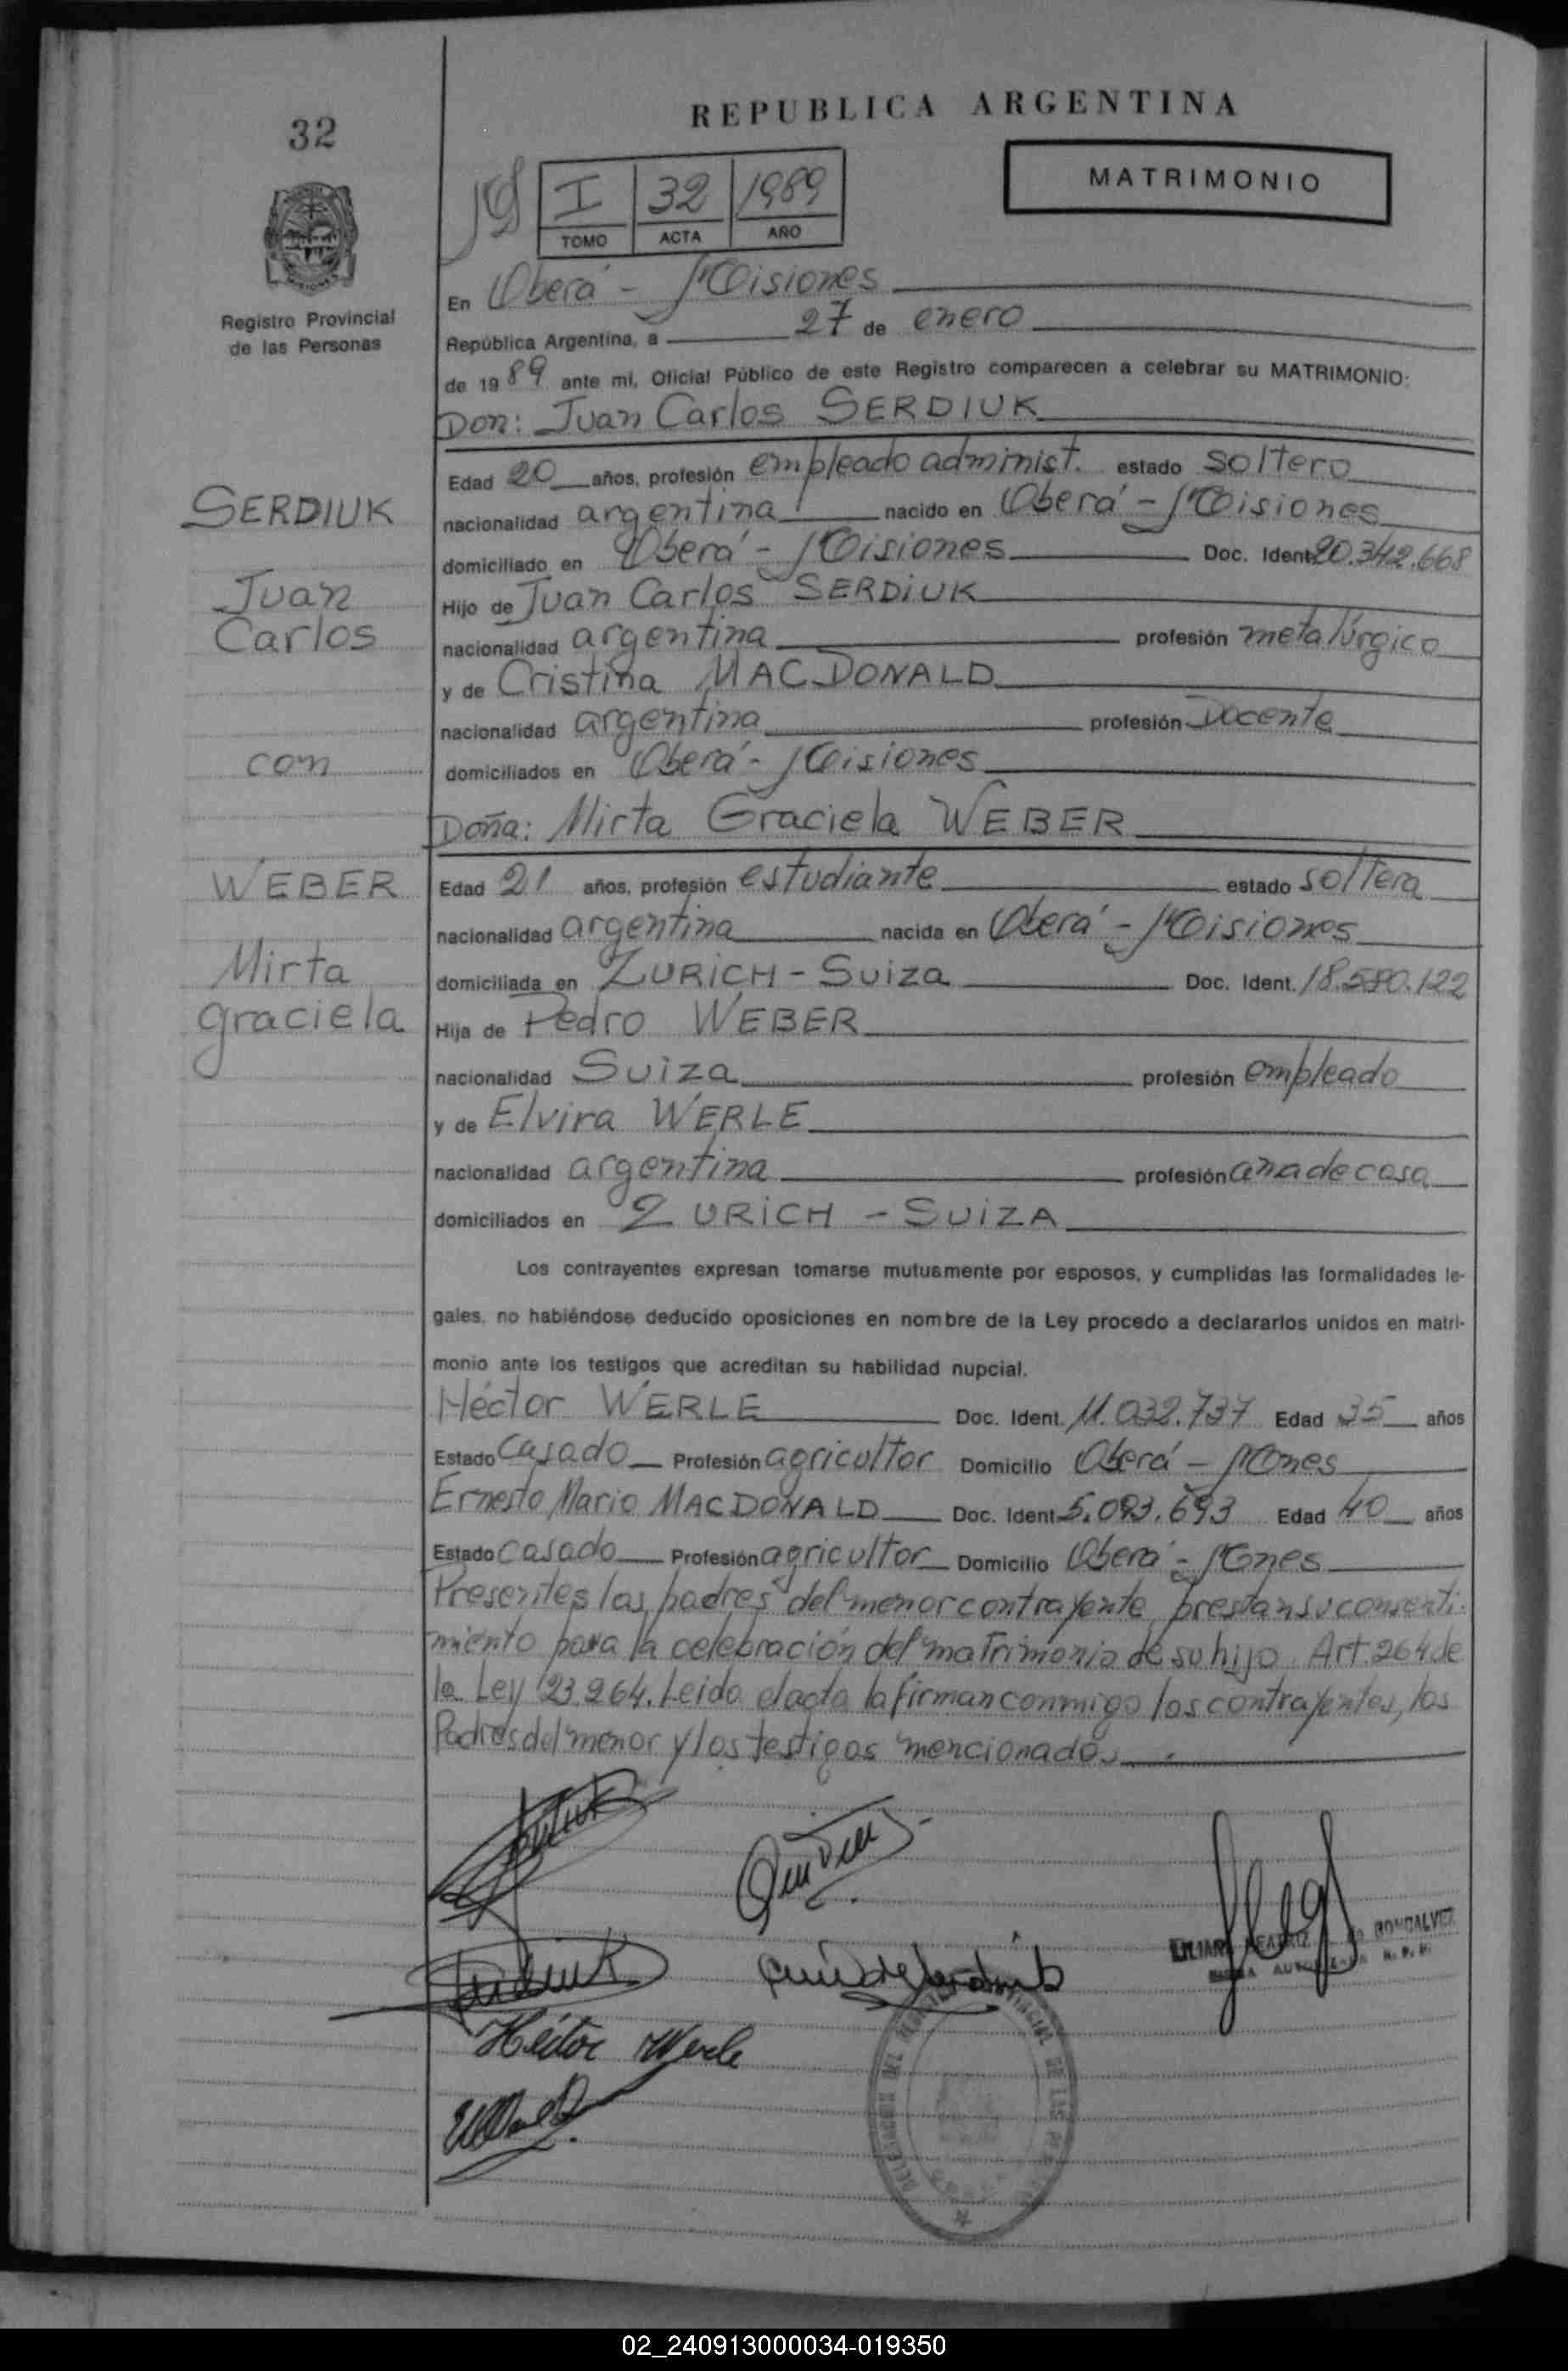 REPUBLICA ARGENTINA
32
MATRIMONIO
I 32 1989
TOMO ACTA AÑO
Registro Provincial
de las Personas
En Oberá - Misiones
República Argentina, a 27 de enero
de 1989 ante mi, Oficial Público de este Registro comparecen a celebrar su MATRIMONIO:
Don: Juan Carlos SERDIUK
Edad 20 años, profesión empleado administ. estado soltero
SERDIUK
nacionalidad argentina nacido en Oberá - Misiones
domiciliado en Oberá - Misiones Doc. Ident. 20.342.668
Juan
Hijo de Juan Carlos SERDIUK
Carlos
nacionalidad argentina profesión metalúrgico
y de Cristina MACDONALD
nacionalidad argentina profesión Docente
con
domiciliados en Oberá - Misiones
Doña: Mirta Graciela WEBER
WEBER
Edad 21 años, profesión estudiante estado soltera
nacionalidad argentina nacida en Oberá - Misiones
Mirta
domiciliada en ZURICH - Suiza Doc. Ident. 18.580.122
graciela
Hija de Pedro WEBER
nacionalidad Suiza profesión empleado
y de Elvira WERLE
nacionalidad argentina profesión ama de casa
domiciliados en ZURICH - SUIZA
Los contrayentes expresan tomarse mutuamente por esposos, y cumplidas las formalidades le-
gales, no habiéndose deducido oposiciones en nombre de la Ley procedo a declararlos unidos en matri-
monio ante los testigos que acreditan su habilidad nupcial.
Héctor WERLE Doc. Ident. 11.032.737 Edad 35 años
Estado Casado Profesión agricultor Domicilio Oberá - Mones
Ernesto Mario MACDONALD Doc. Ident. 5.093.693 Edad 40 años
Estado Casado Profesión agricultor Domicilio Oberá - Mnes
Presentes los padres del menor contrayente prestan su consenti-
miento para la celebración del matrimonio de su hijo. Art. 264 de
la Ley 23.264. Leida el acta la firman conmigo los contrayentes, los
Padres del menor y los testigos mencionados.
Héctor Werle
02_240913000034-019350